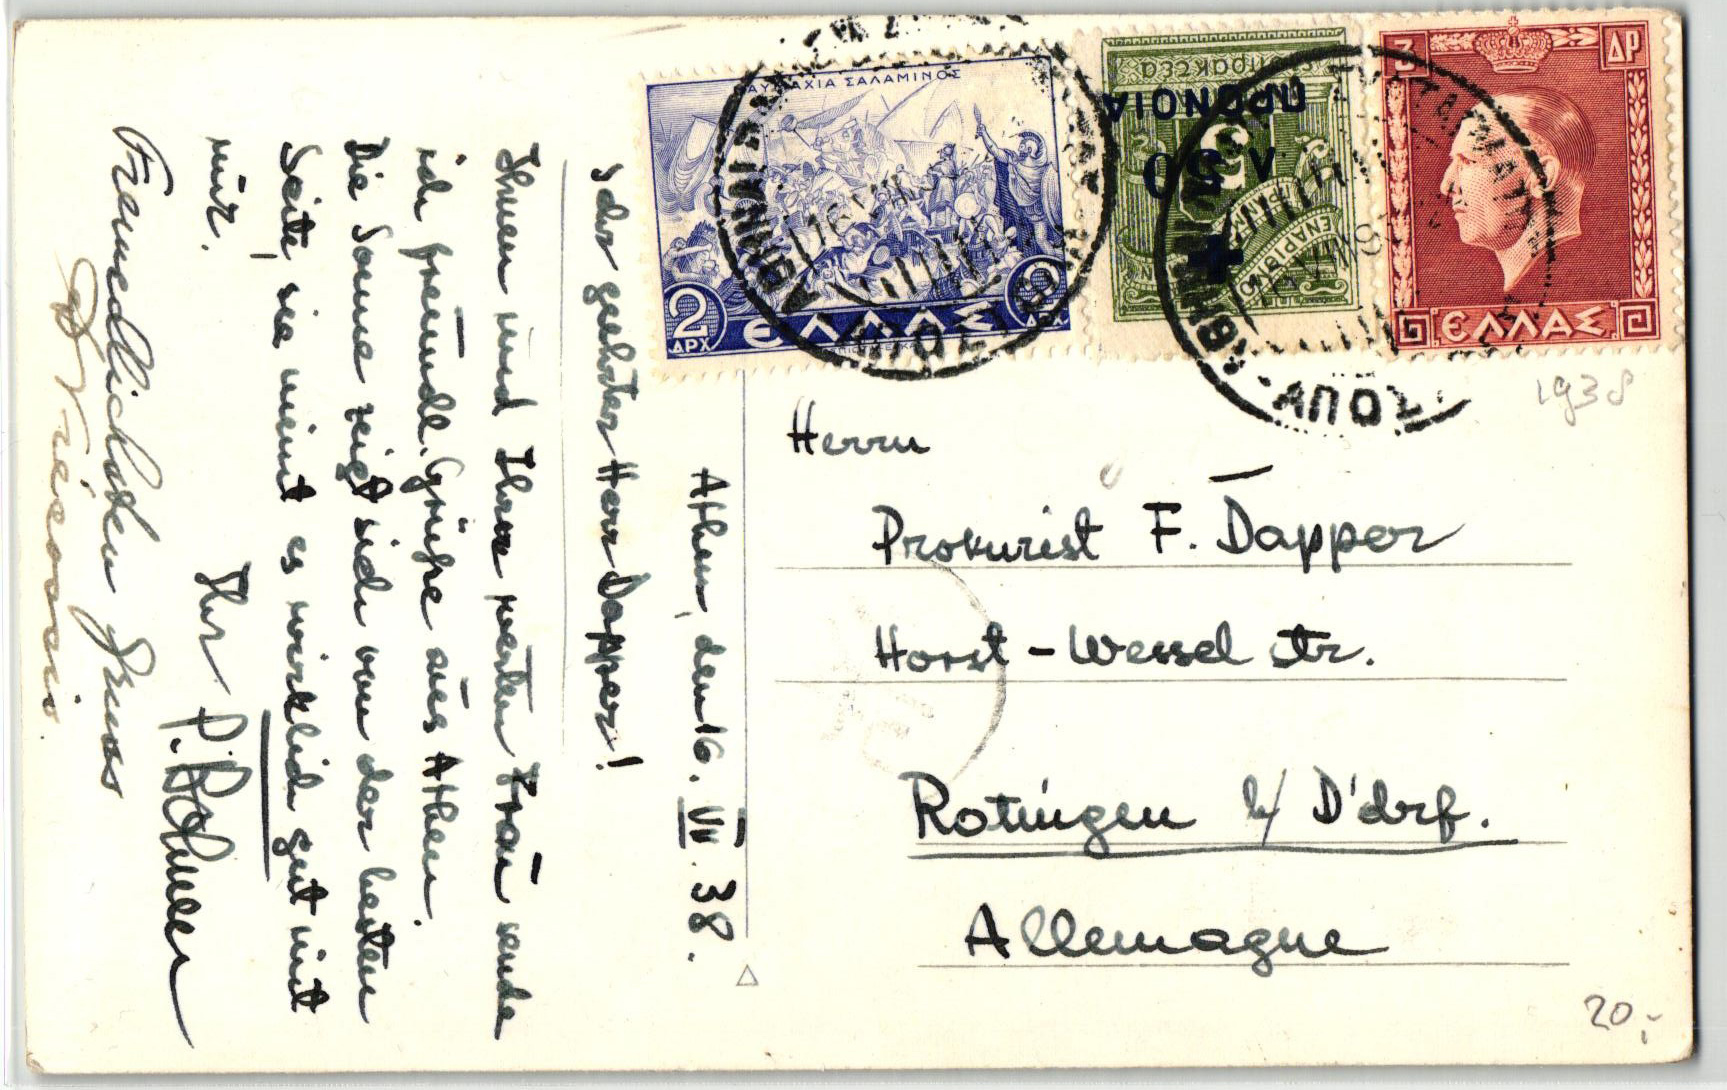 ΝΑΥΜΑΧΙΑ ΣΑΛΑΜΙΝΟΣ
2 ΔΡΧ
ΕΛΛΑΣ
2 ΔΡ.
ΠΡΟΝΟΙΑ
Λ. 50
3 ΔΡ
ΕΛΛΑΣ
1938
Athen, den 16. VII. 38.
Sehr geehrter Herr Dapper!
Ihnen und Ihrer werten Frau sende
ich freundl. Grüße aus Athen.
Die Sonne zeigt sich von der besten
Seite, sie meint es wirklich gut mit
mir.
Ihr P.
Freundlichsten Gruss
Herrn
Prokurist F. Dapper
Horst-Wessel Str.
Ratingen b/ D'drf.
Allemagne
20,-